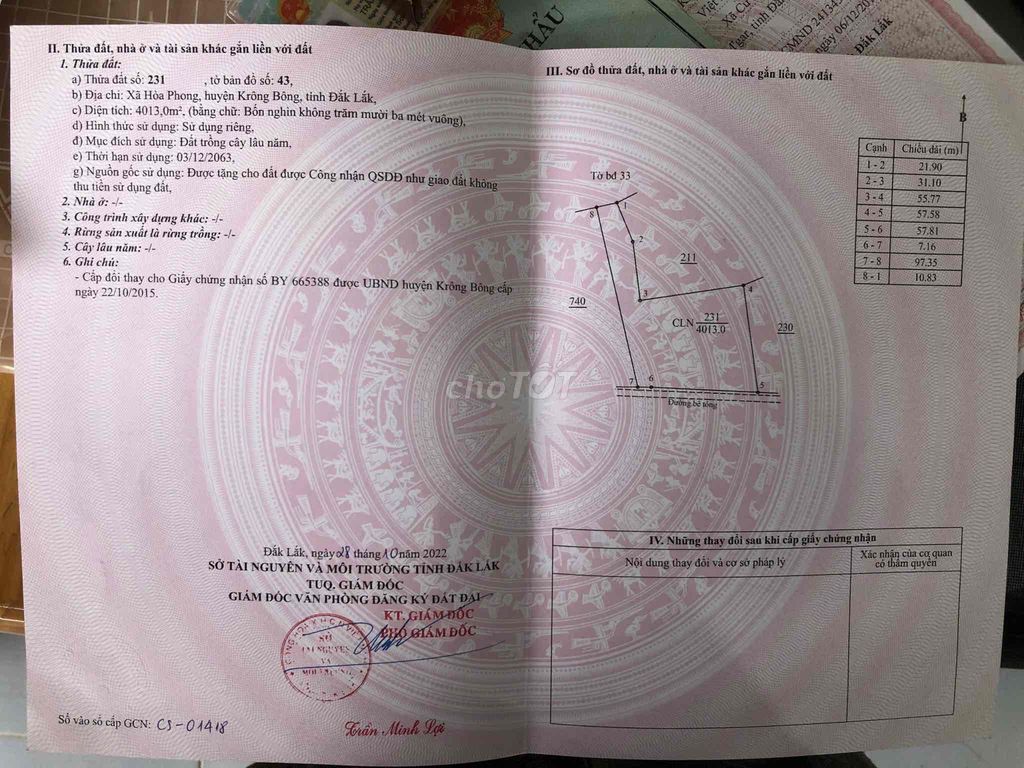 HẨU
Việt
Xã Cư
gar, tỉnh Đắk
CMND 2413
06/12/20
Đắk Lắk
II. Thửa đất, nhà ở và tài sản khác gắn liền với đất
1. Thửa đất:
a) Thửa đất số: 231 , tờ bản đồ số: 43,
b) Địa chỉ: Xã Hòa Phong, huyện Krông Bông, tỉnh Đắk Lắk,
c) Diện tích: 4013,0m², (bằng chữ: Bốn nghìn không trăm mười ba mét vuông),
d) Hình thức sử dụng: Sử dụng riêng,
đ) Mục đích sử dụng: Đất trồng cây lâu năm,
e) Thời hạn sử dụng: 03/12/2063,
g) Nguồn gốc sử dụng: Được tặng cho đất được Công nhận QSDĐ như giao đất không
thu tiền sử dụng đất,
2. Nhà ở: -/-
3. Công trình xây dựng khác: -/-
4. Rừng sản xuất là rừng trồng: -/-
5. Cây lâu năm: -/-
6. Ghi chú:
- Cấp đổi thay cho Giấy chứng nhận số BY 665388 được UBND huyện Krông Bông cấp
ngày 22/10/2015.
Đắk Lắk, ngày 28 tháng 10 năm 2022
SỞ TÀI NGUYÊN VÀ MÔI TRƯỜNG TỈNH ĐẮK LẮK
TUQ. GIÁM ĐỐC
GIÁM ĐỐC VĂN PHÒNG ĐĂNG KÝ ĐẤT ĐAI
KT. GIÁM ĐỐC
PHÓ GIÁM ĐỐC
SỞ
TÀI NGUYÊN
VÀ
MÔI TRƯỜNG
Trần Minh Lợi
Số vào sổ cấp GCN: CS-01418
III. Sơ đồ thửa đất, nhà ở và tài sản khác gắn liền với đất
B
Cạnh Chiều dài (m)
1 - 2 21.90
2 - 3 31.10
3 - 4 55.77
4 - 5 57.58
5 - 6 57.81
6 - 7 7.16
7 - 8 97.35
8 - 1 10.83
Tờ bđ 33
8 1
2
211
3 4
740
CLN 231
4013.0
230
7 6 5
Đường bê tông
choTOT
IV. Những thay đổi sau khi cấp giấy chứng nhận
Nội dung thay đổi và cơ sở pháp lý
Xác nhận của cơ quan
có thẩm quyền